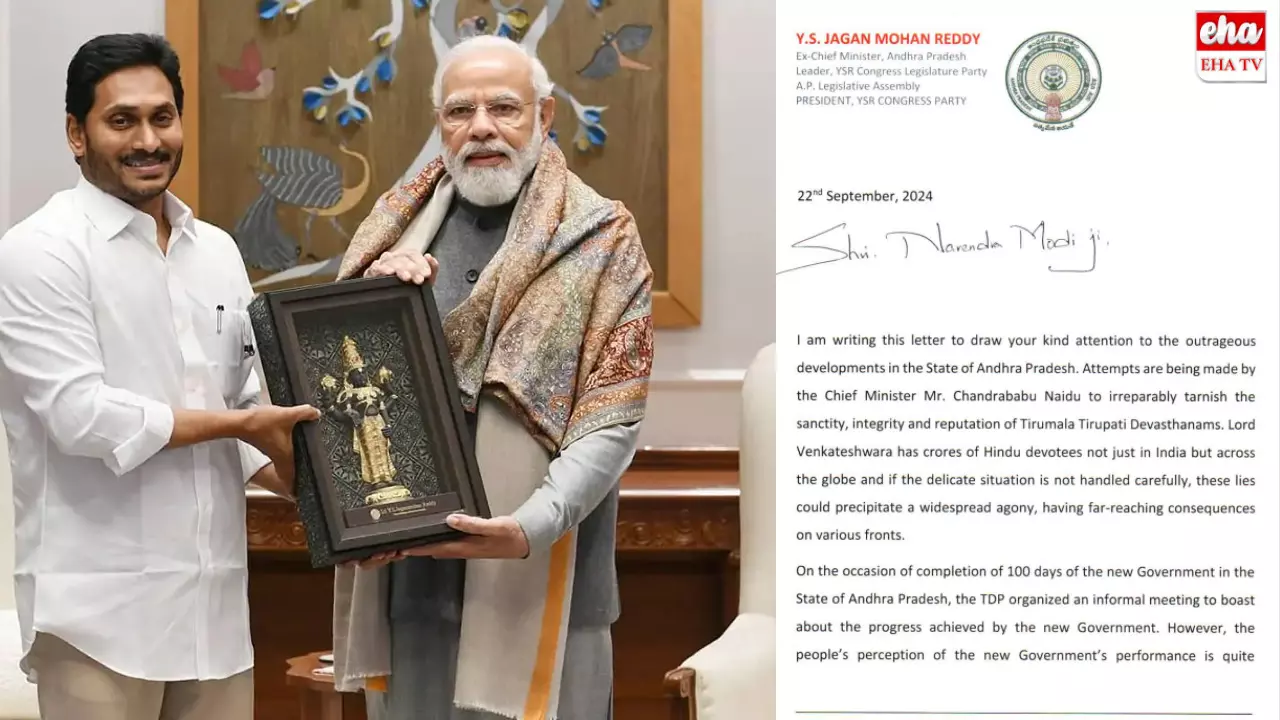 eha
EHA TV
Y.S. JAGAN MOHAN REDDY
Ex-Chief Minister, Andhra Pradesh
Leader, YSR Congress Legislature Party
A.P. Legislative Assembly
PRESIDENT, YSR CONGRESS PARTY
22nd September, 2024
Shri. Narendra Modi ji.
I am writing this letter to draw your kind attention to the outrageous
developments in the State of Andhra Pradesh. Attempts are being made by
the Chief Minister Mr. Chandrababu Naidu to irreparably tarnish the
sanctity, integrity and reputation of Tirumala Tirupati Devasthanams. Lord
Venkateshwara has crores of Hindu devotees not just in India but across
the globe and if the delicate situation is not handled carefully, these lies
could precipitate a widespread agony, having far-reaching consequences
on various fronts.
On the occasion of completion of 100 days of the new Government in the
State of Andhra Pradesh, the TDP organized an informal meeting to boast
about the progress achieved by the new Government. However, the
people's perception of the new Government's performance is quite